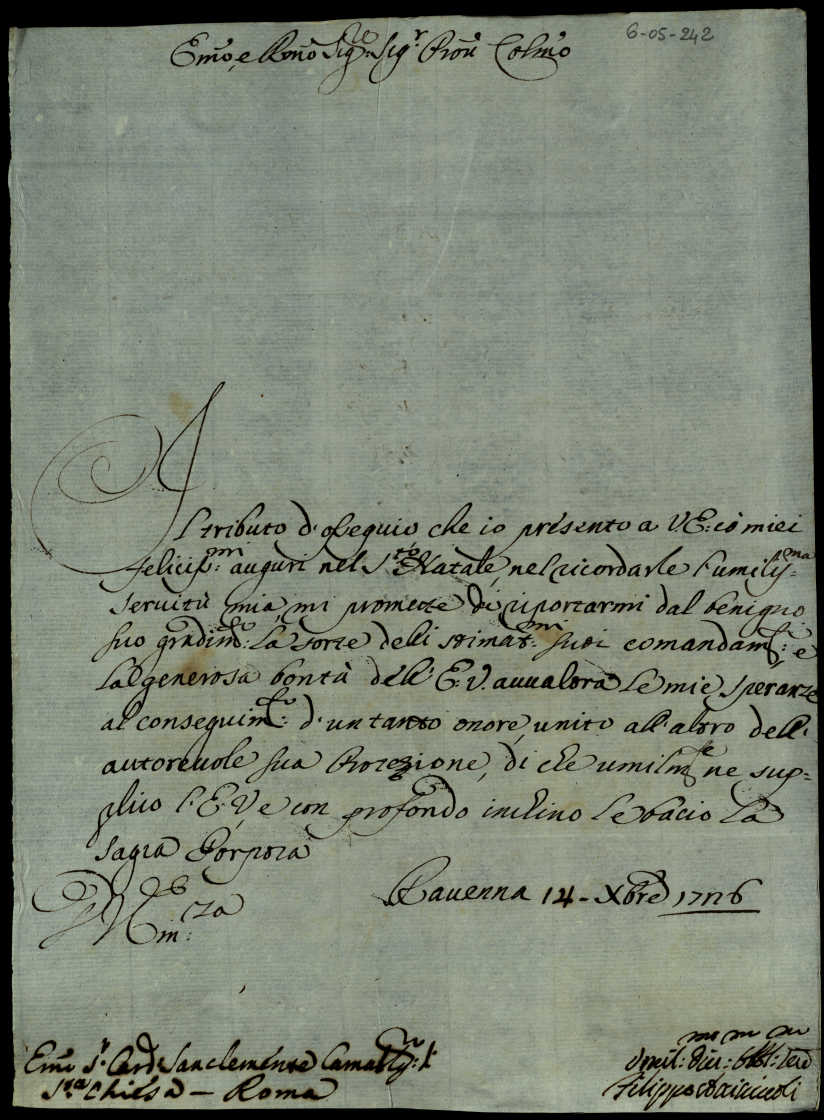 6-05-242
Emo, e Rmo Sigre: Sigr Pron Colmo
Il tributo d'osequio che io presento a V E: cò miei
felicissmi: auguri nel Sto Natale, nel ricordarle l'umilissma
servitù mia, mi promette di riportarmi dal benigno
suo gradimto: la sorte delli stimatmi: suoi comandamti: e
la generosa bontà dell'E: V. auualora le mie speranze
al conseguimto: d'un tanto onore, unito all'altro dell'
autoreuole sua Protezione, di che umilmte ne sup=
plico l'E: V, e con profondo inchino le bacio la
sagra Porpora
Ravenna 14 - Xbre 1726
Emo Sr. Card: Sanclemente
Sta Chiesa - Roma
umil: diu: obbl:
Filippo